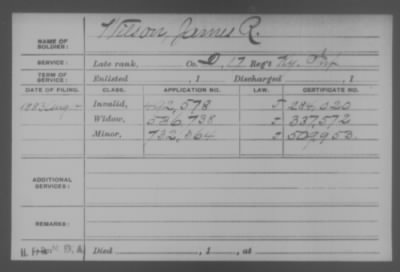 NAME OF SOLDIER: Wilson, James R.
SERVICE: Late rank, Co. D, 17 Reg't Ky. Inf
TERM OF SERVICE: Enlisted , 1 Discharged , 1
DATE OF FILING. CLASS. APPLICATION NO. LAW. CERTIFICATE NO.
1883 Aug - Invalid, 492,578 284,020
Widow, 536,738 337,572
Minor, 732,864 509,953.
ADDITIONAL SERVICES:
REMARKS:
Died , 1 , at